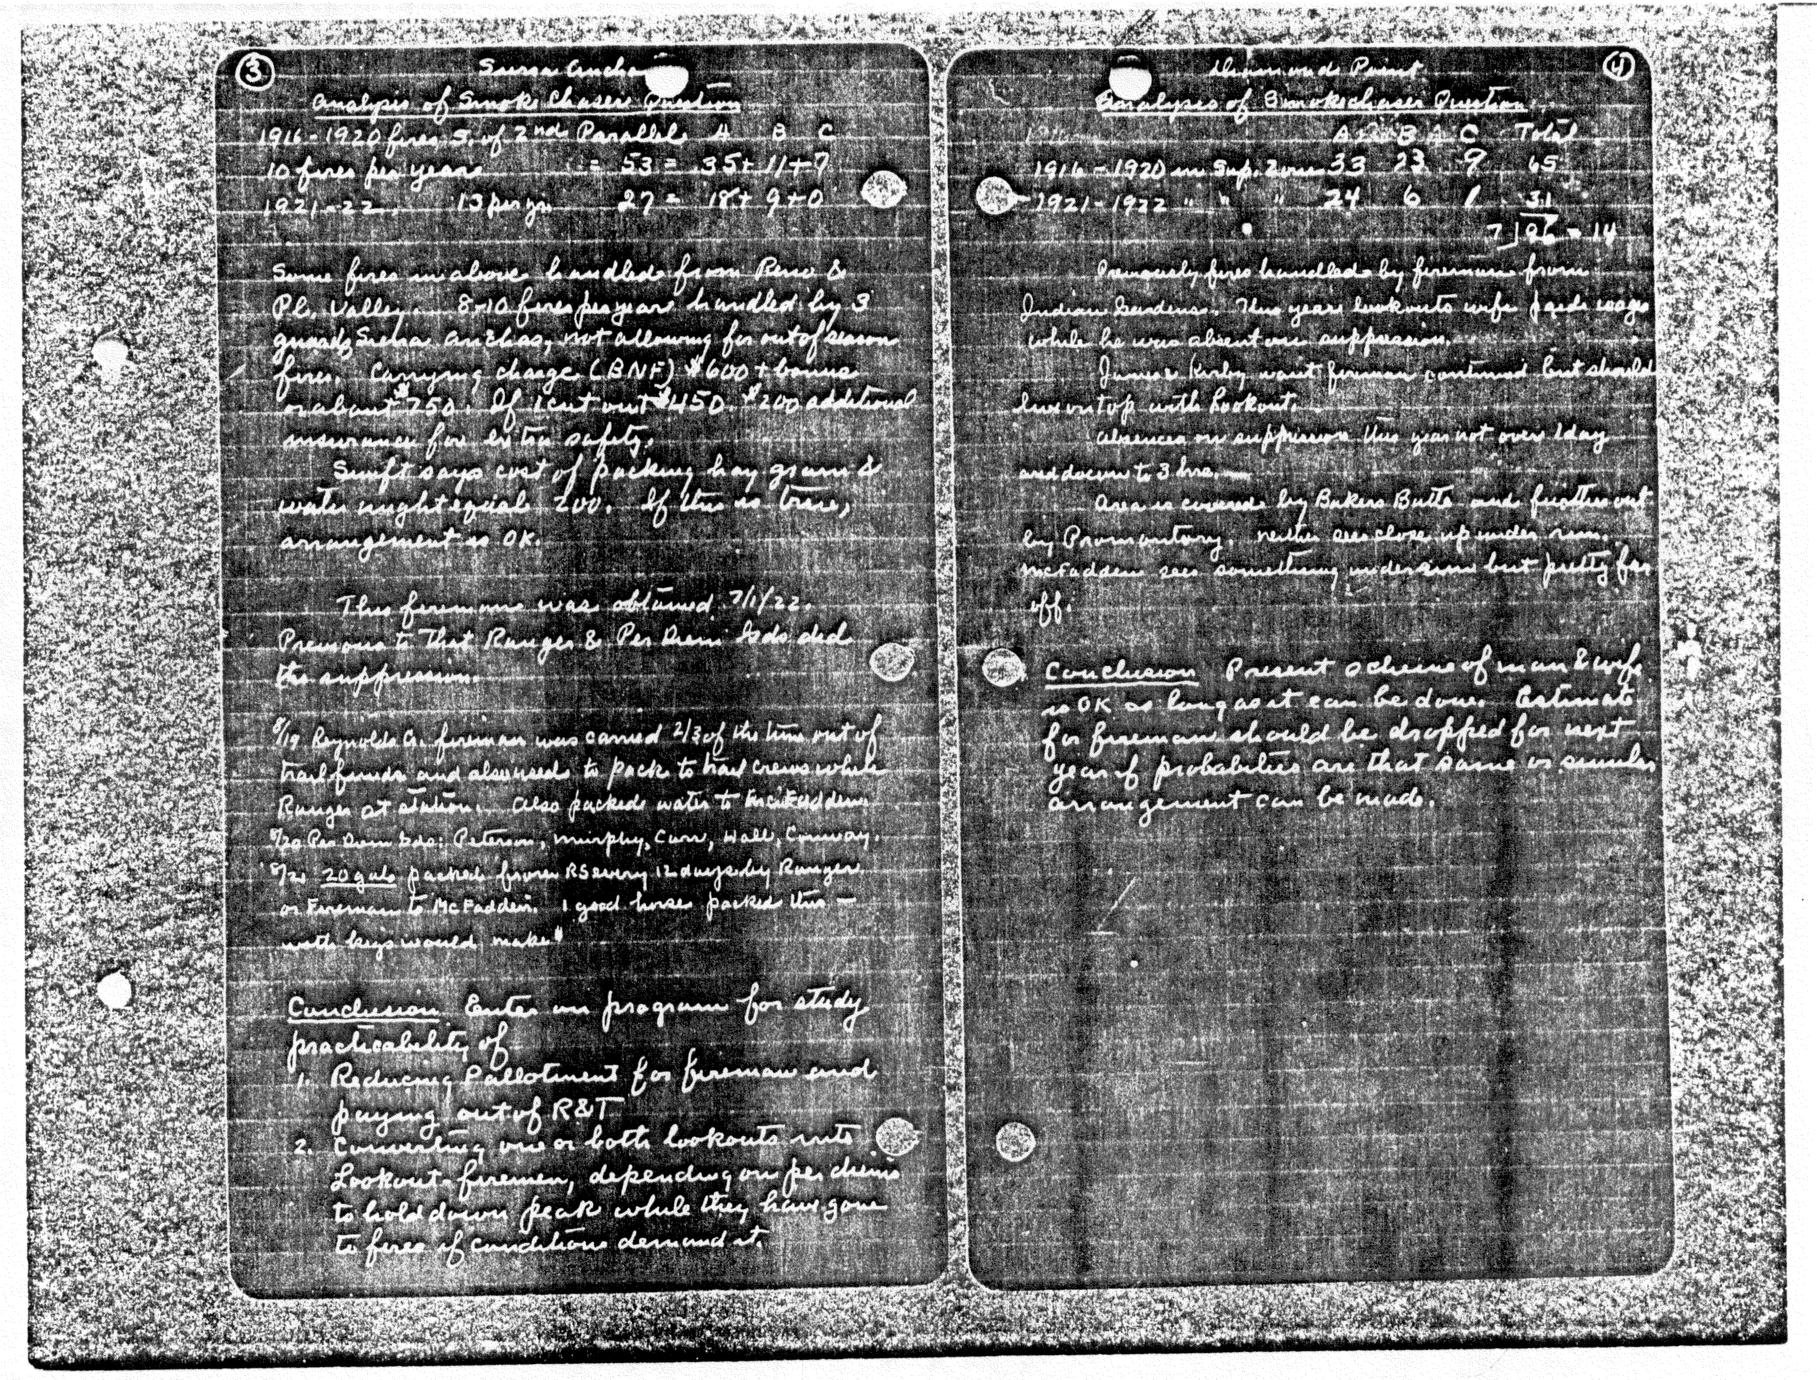 3
Sierra Ancha
Analysis of Smoke Chaser Question
1916-1920 fires S. of 2nd Parallel A B C
10 fires per year = 53 = 35 + 11 + 7
1921-22. 13 per yr. 27 = 18 + 9 + 0
Some fires in above handled from Reno &
Pl. Valley. 8-10 fires per year handled by 3
guards Sierra Anchas, not allowing for out of season
fires. Carrying charge (BNF) $600 + bonus
or about $750. If 1 cut out $450. $200 additional
insurance for extra safety.
Swift says cost of packing hay grain &
water might equal 200. If this is true,
arrangement is OK.
This fireman was obtained 7/1/22.
Previous to that Ranger & Per Diem Gds did
the suppression.
8/19 Reynolds Cr. fireman was carried 2/3 of the time out of
trail funds and also used to pack to trail crews while
Ranger at station. Also packed water to McFadden.
8/20 Per Diem Gds: Peterson, Murphy, Carr, Wall, Conway.
8/21 20 gals packed from RS every 12 days by Ranger
or Fireman to McFadden. 1 good horse packed this —
with kegs would make
Conclusion Enter on program for study
practicability of
1. Reducing P allotment for fireman and
paying out of R&T
2. Converting one or both lookouts into
Lookout-firemen, depending on per diems
to hold down peak while they have gone
to fires if conditions demand it.
4
Diamond Point
Analysis of Smokechaser Question
1916 A B C Total
1916-1920 in Sup. Zone 33 23 9 65
1921-1922 " " " 24 6 1 31
7 | 96 = 14
Previously fires handled by fireman from
Indian Gardens. This year lookouts wife paid wages
while he was absent on suppression.
James & Kirby want fireman continued but should
live on top with Lookout.
Absences on suppression this year not over 1 day
and down to 3 hrs.
Area is covered by Bakers Butte and further out
by Promontory. Neither sees close up under rim.
McFadden sees something under rim but pretty far
off.
Conclusion Present scheme of man & wife
is OK as long as it can be done. Estimate
for fireman should be dropped for next
year if probabilities are that same or similar
arrangement can be made.